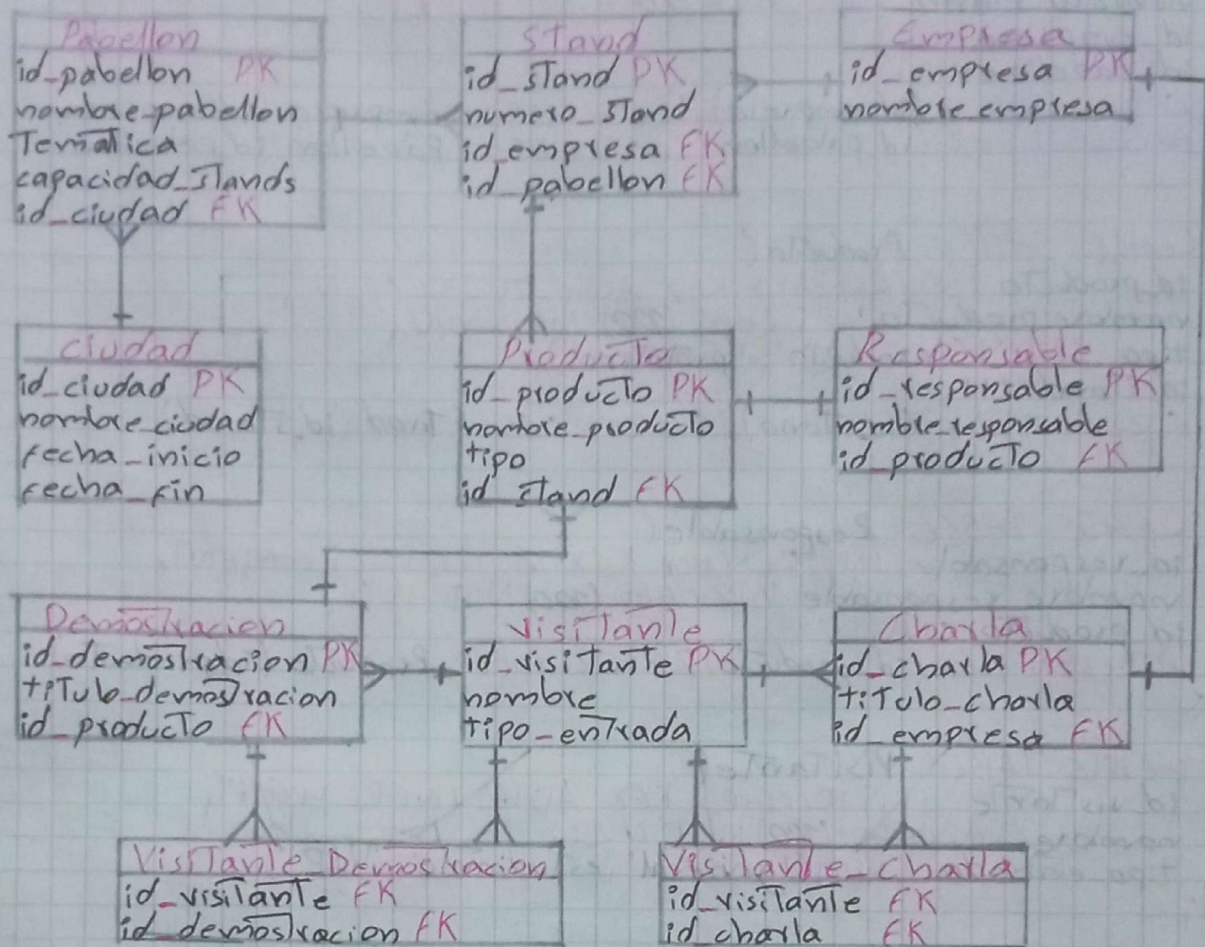 Pabellon
id_pabellon PK
nombre_pabellon
Tematica
capacidad_stands
id_ciudad FK
Stand
id_stand PK
numero_stand
id_empresa FK
id_pabellon FK
Empresa
id_empresa PK
nombre empresa
Ciudad
id_ciudad PK
nombre_ciudad
fecha_inicio
fecha_fin
Producto
id_producto PK
nombre_producto
tipo
id_stand FK
Responsable
id_responsable PK
nombre_responsable
id_producto FK
Demostracion
id_demostracion PK
titulo_demostracion
id_producto FK
Visitante
id_visitante PK
nombre
tipo_entrada
Charla
id_charla PK
titulo_charla
id_empresa FK
Visitante_Demostracion
id_visitante FK
id_demostracion FK
Visitante_Charla
id_visitante FK
id_charla FK